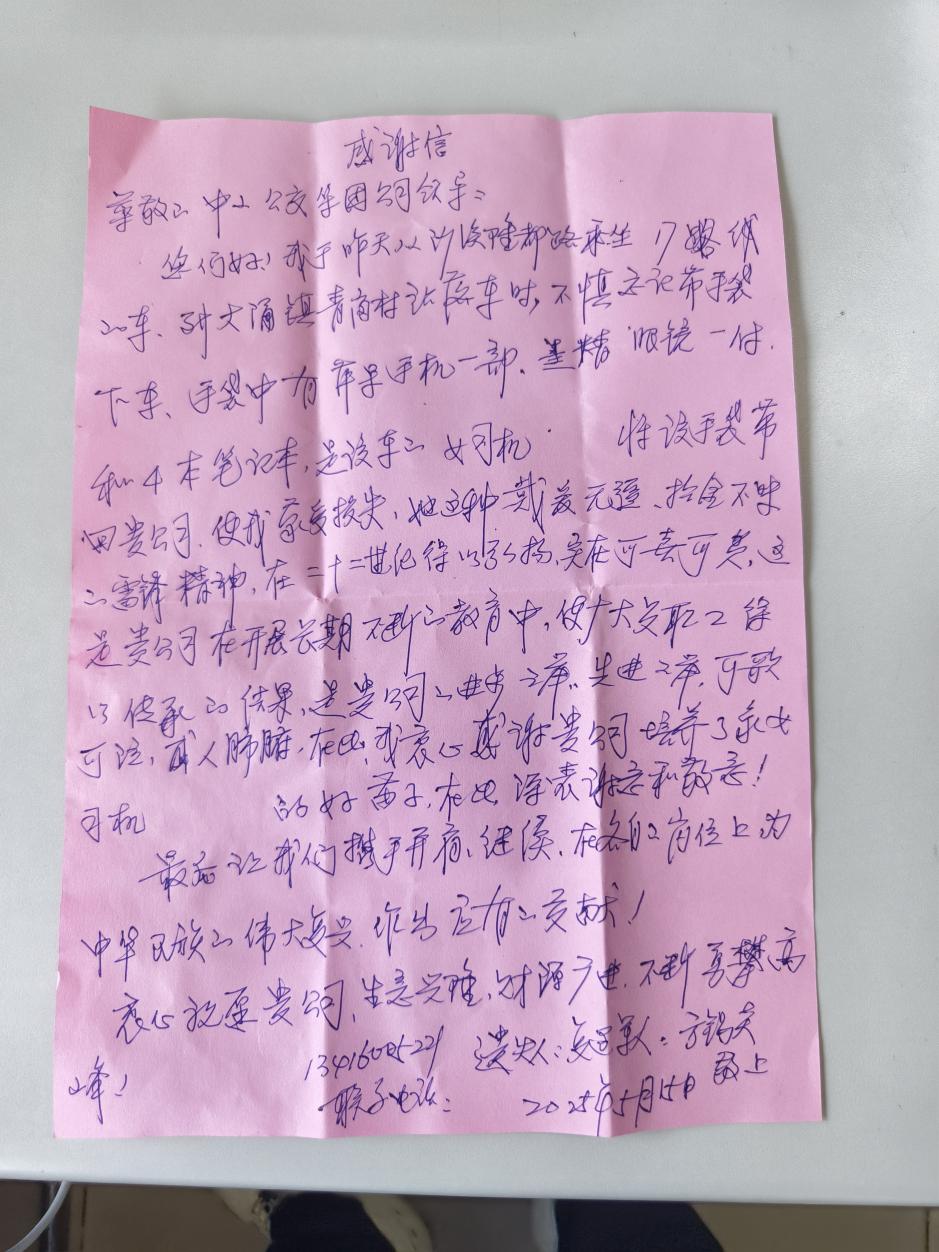 感谢信
尊敬的中山公交集团公司领导：
您们好！我于昨天从沙溪隆都路乘坐17路线
的车、到大涌镇青岗村站落车时，不慎忘记带手袋
下车、手袋中有苹果手机一部、眼镜一付．
和4本笔记本，是该车的女司机 将该手袋带
回贵公司．使我蒙受损失，她这种大爱无疆、拾金不昧
的雷锋精神，在二十二世纪得以弘扬，实在可喜可贺，这
是贵公司在开展长期不断的教育中，使广大员职工得
以传承的结果，是贵公司的进步之举、先进之举，可歌
可泣，感人肺腑，在此，我衷心感谢贵公司培养了象女
司机 的好苗子，在此，深表谢意和敬意！
最后让我们携手并肩、继续、在各自的岗位上为
中华民族的伟大复兴．作出应有的贡献！
衷心祝愿贵公司，生意兴隆，财源广进，不断勇攀高
遗失人：
的峰！ 联系电话： 2025年5月15日 上